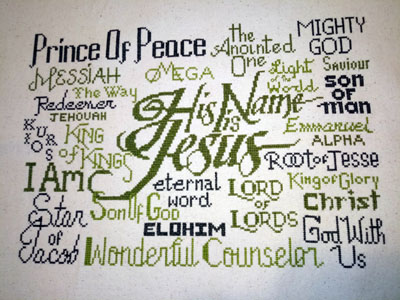 Prince Of Peace
the
Anointed
One
MIGHTY
GOD
MESSIAH
OMEGA
Light
of the
World
Saviour
son
of
man
The Way
Redeemer
JEHOVAH
His Name
is
Jesus
Emmanuel
ALPHA
KURIOS
KING
of KINGS
Root of Jesse
I Am
eternal
word
LORD
of
LORDS
King of Glory
Christ
Star
of
Jacob
Son Of God
ELOHIM
God With
Us
Wonderful Counselor